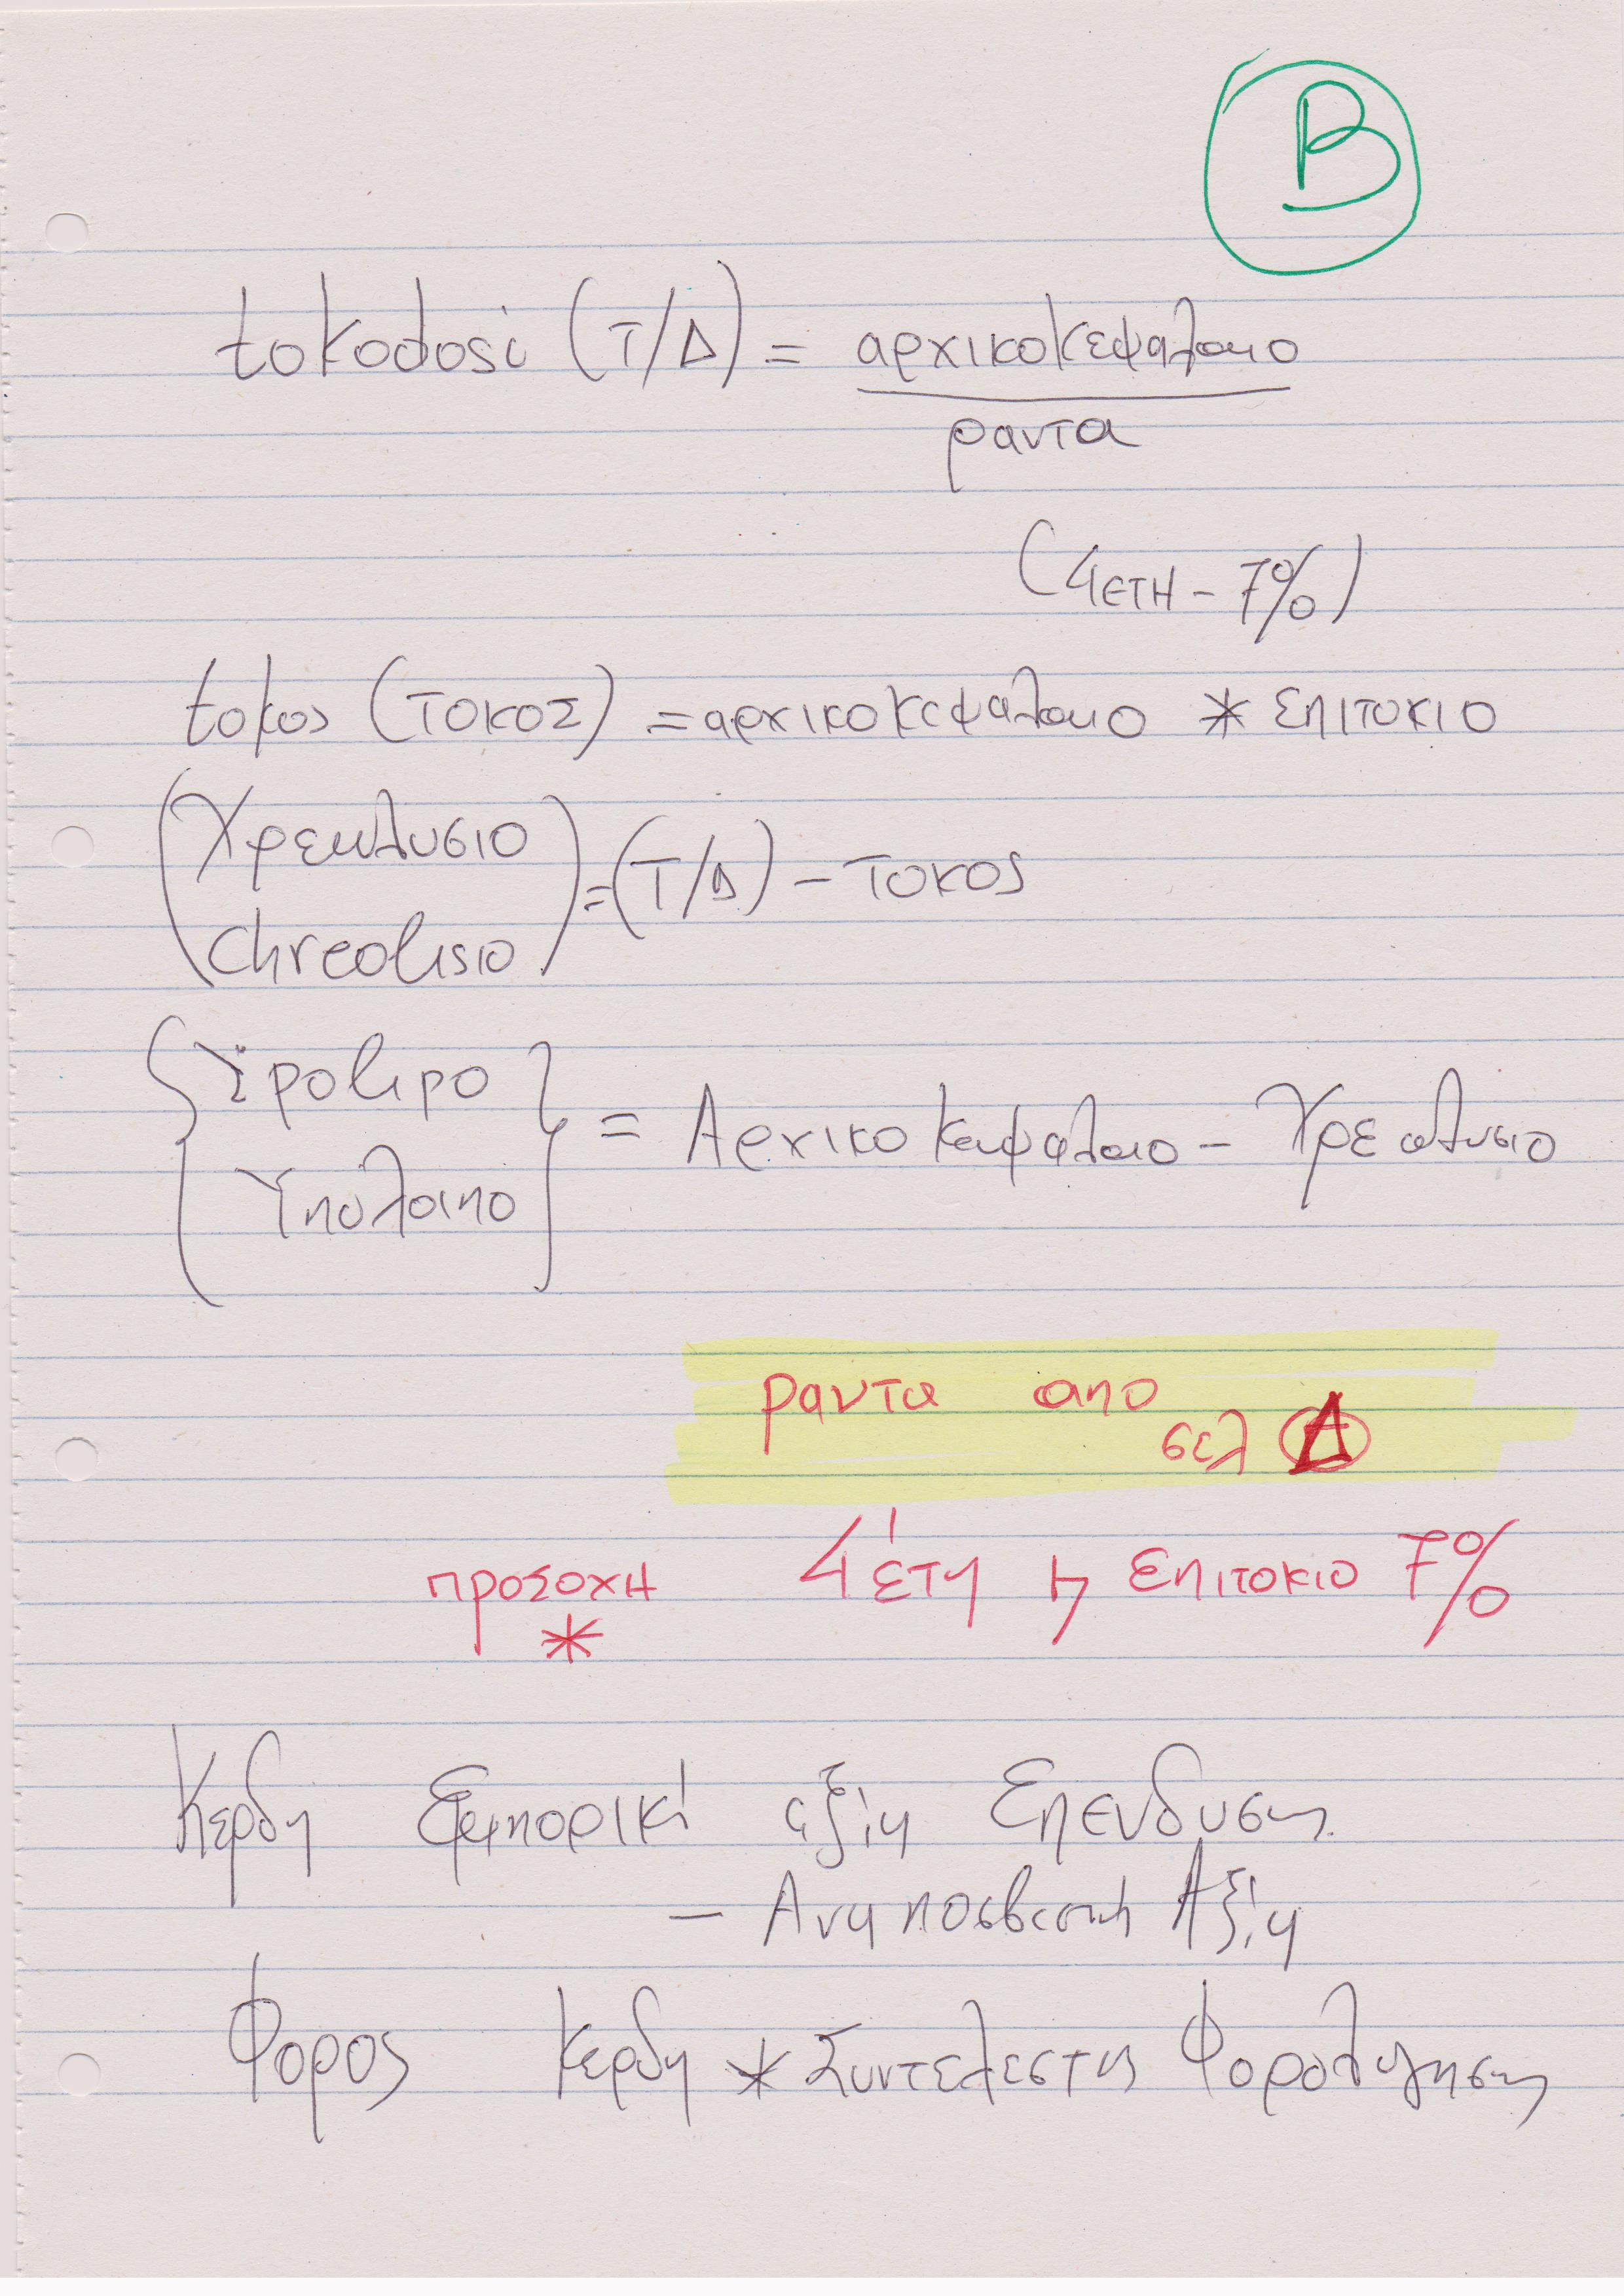 Β
tokodosi (Τ/Δ) = αρχικο κεφαλαιο
ραντα
(4 ΕΤΗ - 7%)
tokos (ΤΟΚΟΣ) = αρχικο κεφαλαιο * επιτοκιο
(Χρεωλυσιο
chreolisio) = (Τ/Δ) - τοκος
{Ypolipo
Υπολοιπο} = Αρχικο κεφαλαιο - Χρεωλυσιο
ραντα απο
σελ Δ
προσοχη 4 έτη & επιτοκιο 7%
*
Κερδη Εμπορική αξία Επενδυσης
- Αναποσβεστη Αξία
Φορος Κερδη * Συντελεστης Φορολογησης